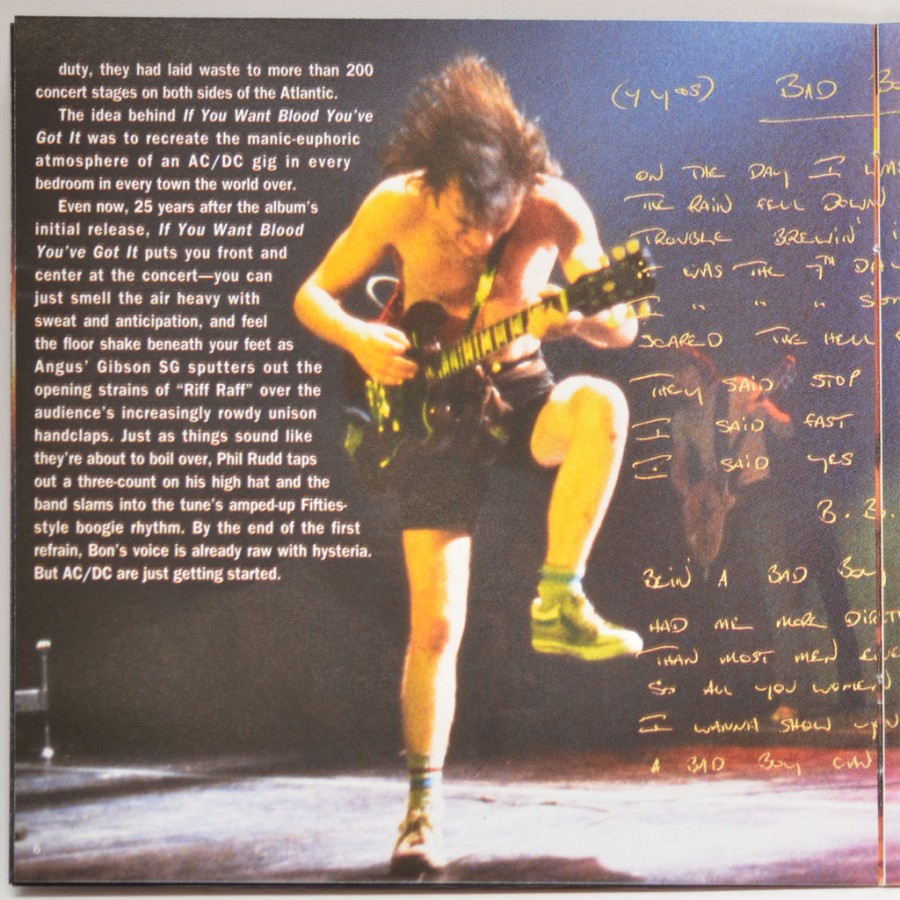 duty, they had laid waste to more than 200
concert stages on both sides of the Atlantic.
The idea behind If You Want Blood You've
Got It was to recreate the manic-euphoric
atmosphere of an AC/DC gig in every
bedroom in every town the world over.
Even now, 25 years after the album's
initial release, If You Want Blood
You've Got It puts you front and
center at the concert—you can
just smell the air heavy with
sweat and anticipation, and feel
the floor shake beneath your feet as
Angus' Gibson SG sputters out the
opening strains of “Riff Raff” over the
audience's increasingly rowdy unison
handclaps. Just as things sound like
they're about to boil over, Phil Rudd taps
out a three-count on his high hat and the
band slams into the tune's amped-up Fifties-
style boogie rhythm. By the end of the first
refrain, Bon's voice is already raw with hysteria.
But AC/DC are just getting started.
6
BAD
ON THE DAY I WAS
THE RAIN FELL DOWN
TROUBLE BREWIN'
I WAS THE 7TH DAY
I " " "
SCARED THE HELL
THEY SAID STOP
I SAID FAST
I SAID YES
B. B.
BEIN' A BAD BOY
HAD ME MORE
THAN MOST MEN
SO ALL YOU WOMEN
I WANNA SHOW YOU
A BAD BOY CAN